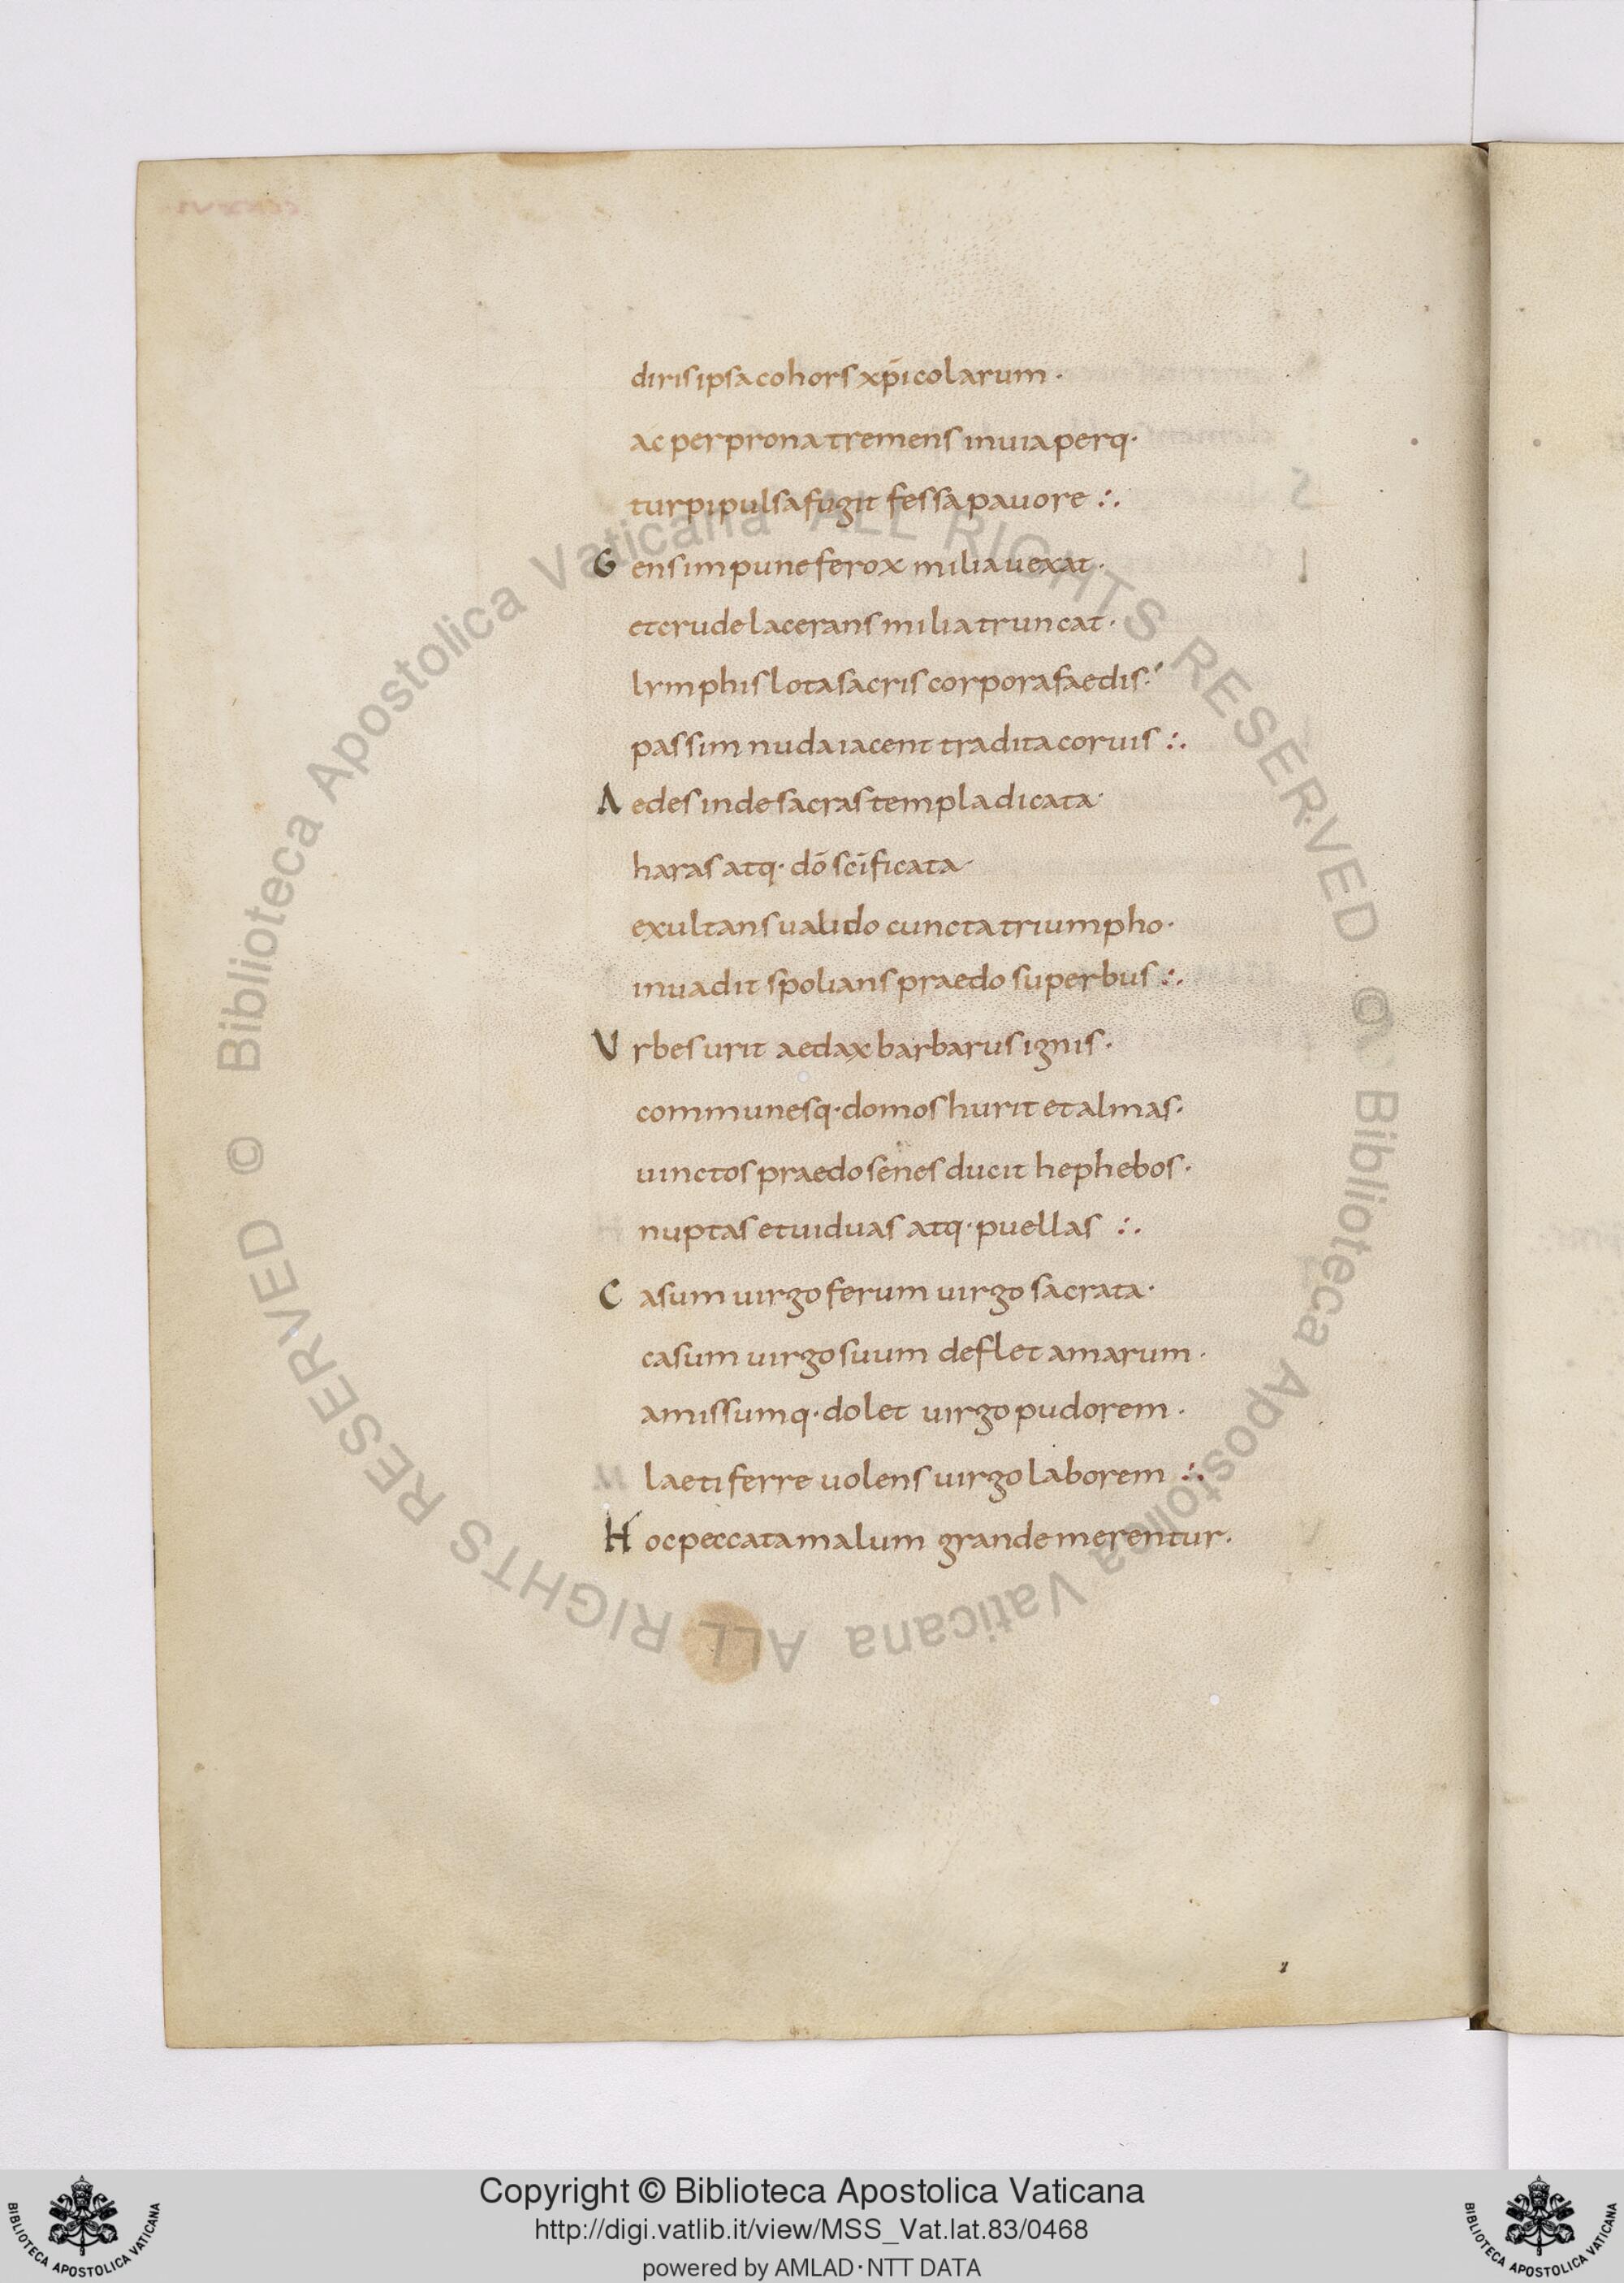 diris ipsa cohors xp̄icolarum ·
ac per prona tremens inuia perq·
turpi pulsa fugit fessa pauore ∴
Gens impune ferox milia uexat ·
et crude lacerans milia truncat ·
lymphis lota sacris corpora faedis·
passim nuda iacent tradita coruis ∴
Aedes inde sacras templa dicata·
haras atq· dō scīficata·
exultans ualido cuncta triumpho·
inuadit spolians praedo superbus ∴
Vrbes urit aedax barbarus ignis·
communesq· domos hurit et almas·
uinctos praedo senes ducit hephebos·
nuptas et uiduas atq· puellas ∴
Casum uirgo ferum uirgo sacrata·
casum uirgo suum deflet amarum·
amissumq· dolet uirgo pudorem·
laeti ferre uolens uirgo laborem ∴
Hoc peccata malum grande merentur·
© Biblioteca Apostolica Vaticana ALL RIGHTS RESERVED
© Biblioteca Apostolica Vaticana ALL RIGHTS RESERVED
Copyright © Biblioteca Apostolica Vaticana
http://digi.vatlib.it/view/MSS_Vat.lat.83/0468
powered by AMLAD·NTT DATA
BIBLIOTECA APOSTOLICA VATICANA
BIBLIOTECA APOSTOLICA VATICANA